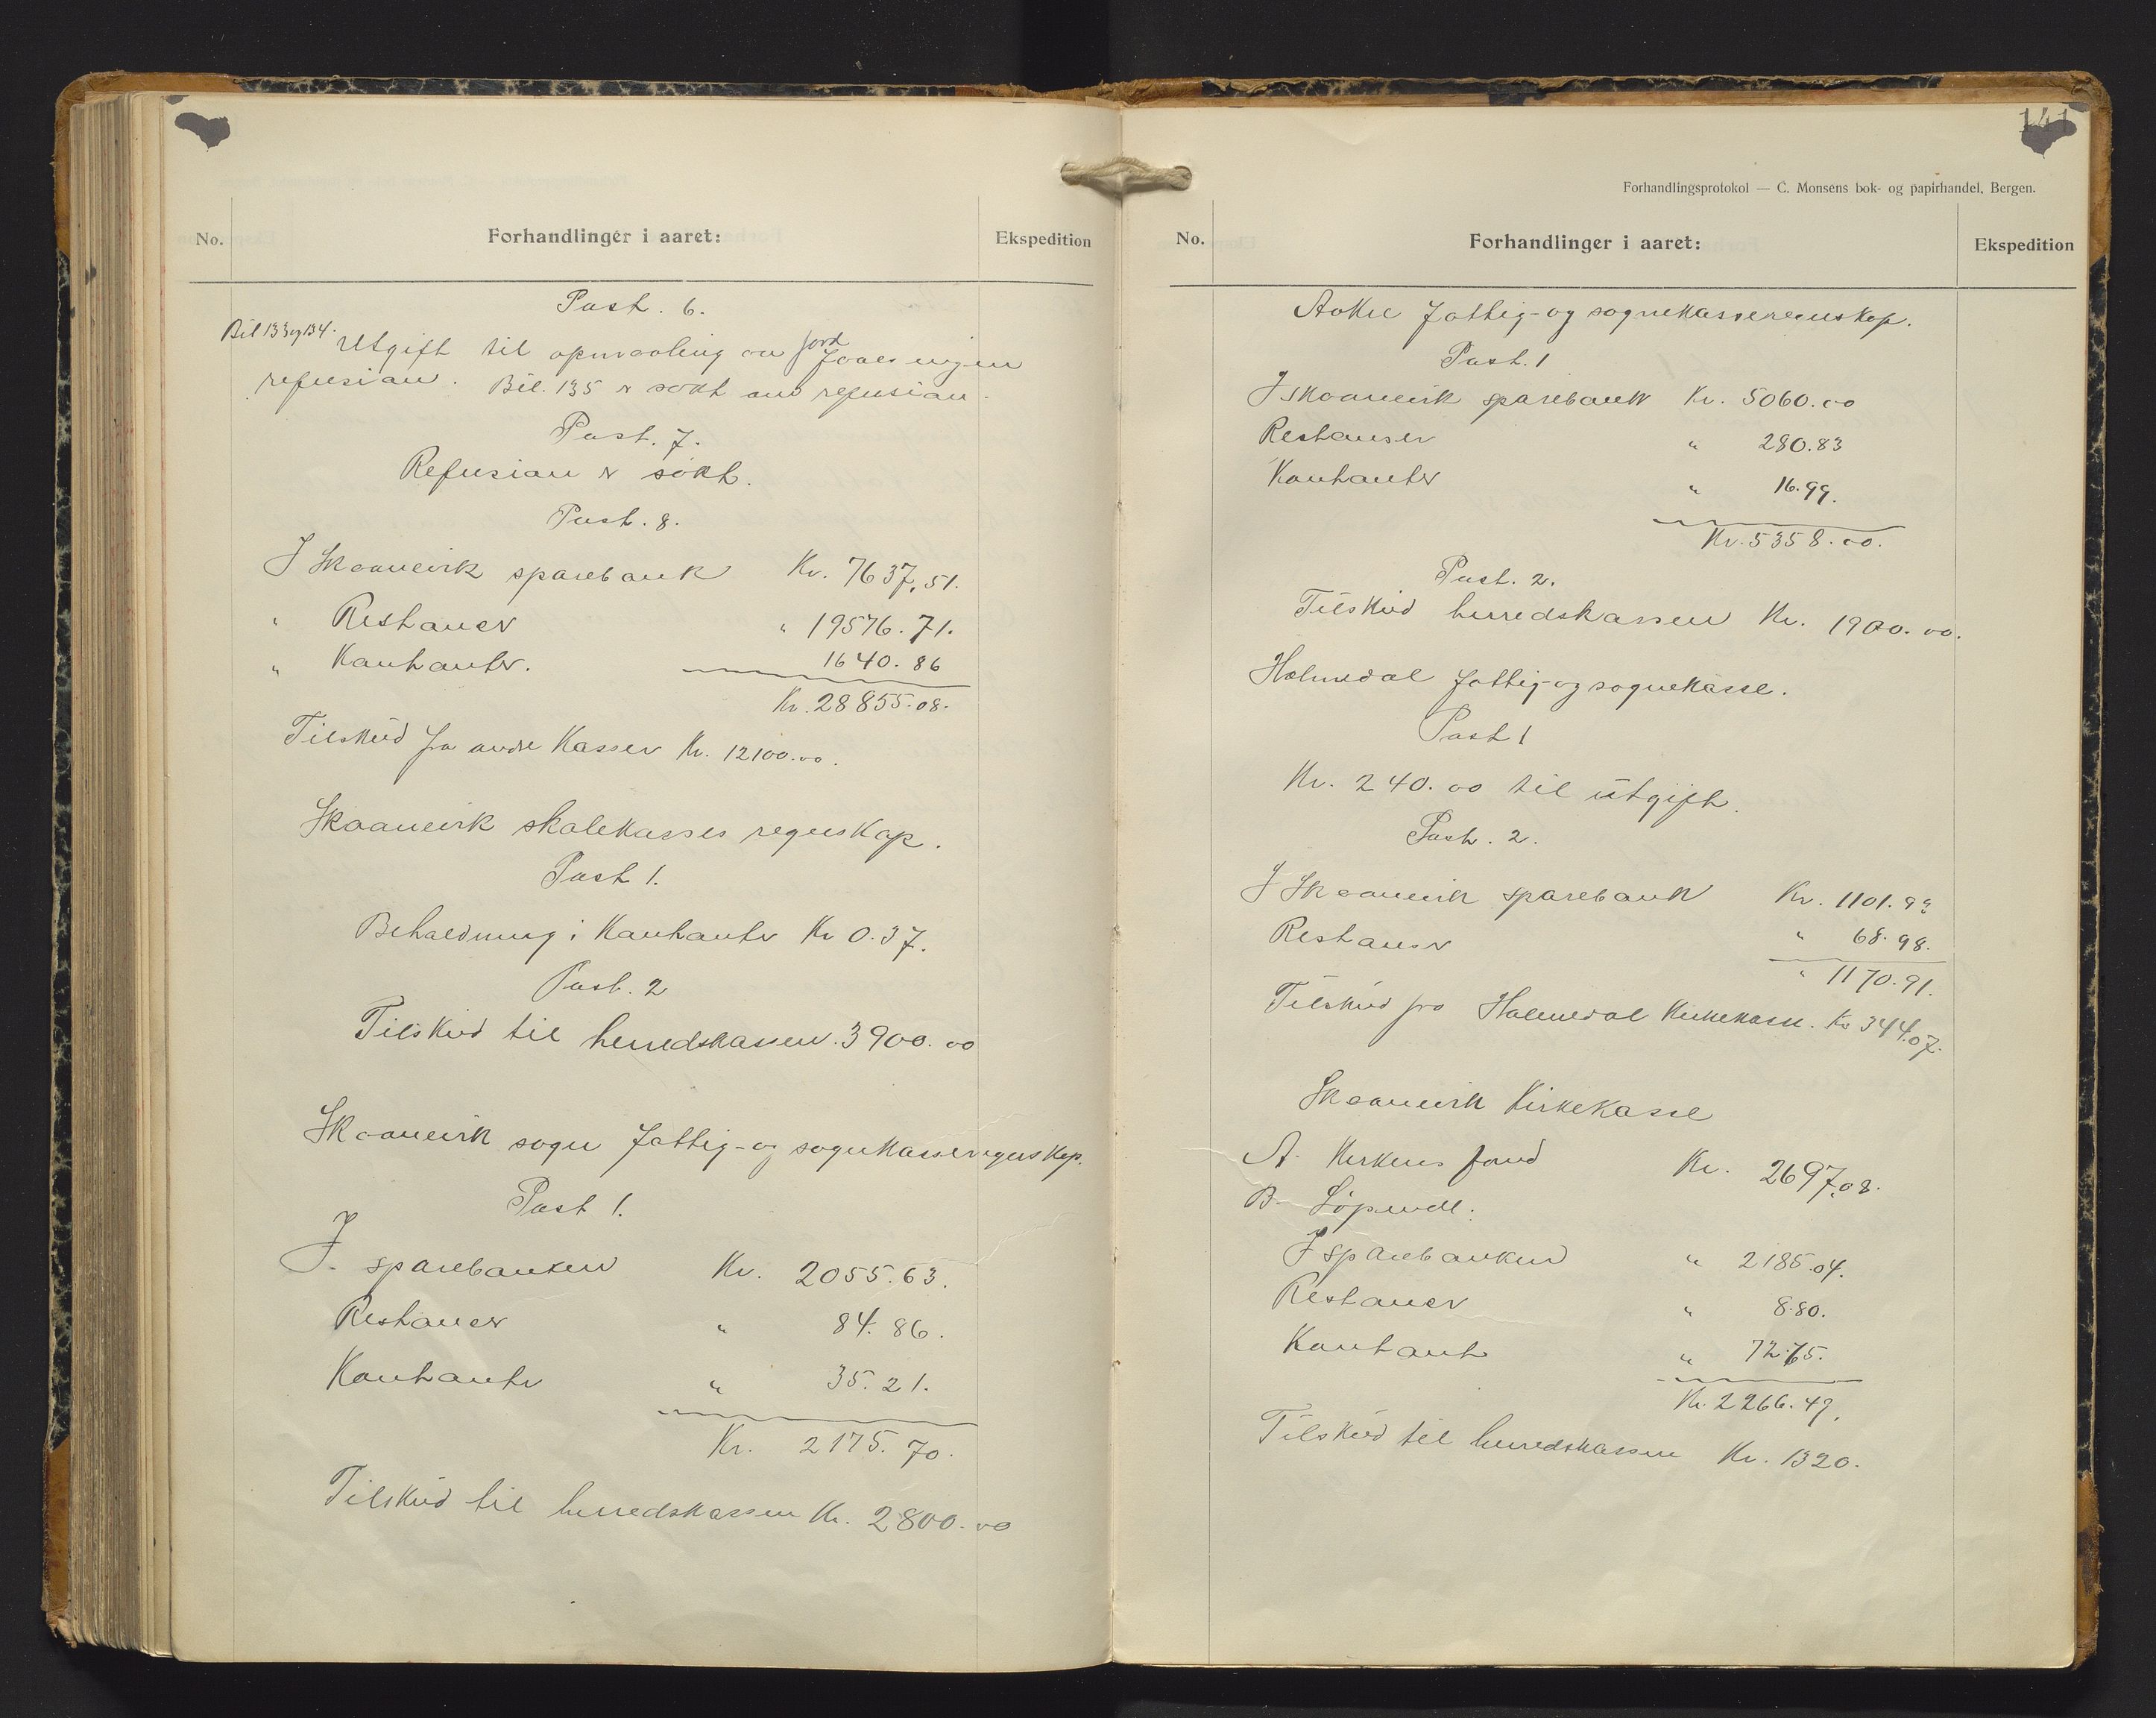 No.
Forhandlinger i aaret:
Ekspedition
Post. 6.
Bil 133 og 134. Utgift til opmaaling av jord faaes ingen
refusian. Bil. 135 er søkt om refusian.
Post. 7.
Refusian er søkt.
Post. 8.
I Skaanevik sparebank Kr. 7637,51.
" Restancer " 19576.71.
" Kantanter. 1640.86
Kr. 28855.08.
Tilskud fra andre Kasser Kr. 12100.00.
Skaanevik skolekasses regnskap.
Post 1.
Beholdning i Kantanter Kr 0.37.
Post. 2
Tilskud til herredskassen. 3900.00
Skaanevik sogn fattig- og sognekasseregnskap.
Post 1.
I sparebanken Kr. 2055.63.
Restancer " 84.86.
Kontanter " 35.21.
Kr. 2175.70.
Tilskud til herredskassen Kr. 2800.00
141
Forhandlingsprotokol — C. Monsens bok- og papirhandel, Bergen.
No.
Forhandlinger i aaret:
Ekspedition
Aakre fattig- og sognekasseregnskap.
Post. 1
I Skaanevik sparebank Kr. 5060.00
Restanser " 280.83
Kontanter " 16.99.
Kr. 5358.00.
Post. 2.
Tilskud herredskassen Kr. 1900.00.
Holmedal fattig- og sognekasse.
Post 1
Kr. 240.00 til utgift.
Post. 2.
I Skaanevik sparebank Kr. 1101.93
Restanser " 68.98.
" 1170.91.
Tilskud fra Holmedal Kirkekasse. Kr 344.07.
Skaanevik Kirkekasse
A. Kirkens fond Kr. 2697.08.
B. Løpende.
I sparebanken " 2185.04.
Restancer " 8.80.
Kontant " 72.65.
Kr. 2266.49.
Tilskud til herredskassen Kr. 1320.